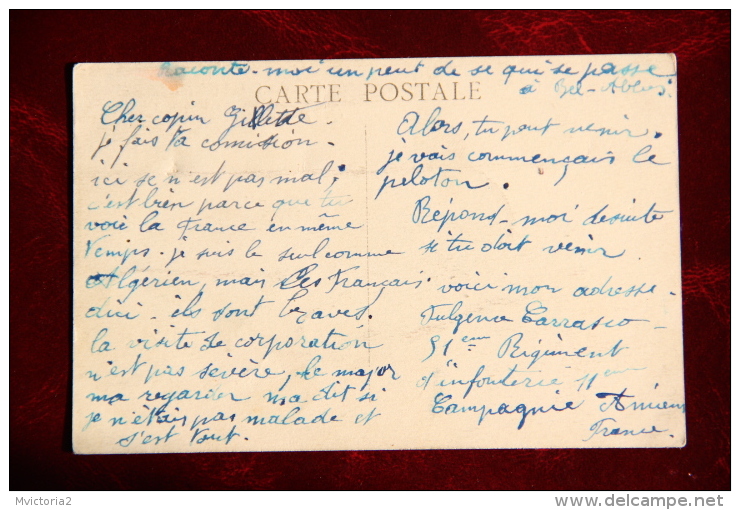 Raconte-moi un peut de se qui se passe
à Bel-Abbes.
CARTE POSTALE
Cher copin Gillette.
je fais ta comission.
ici se n'est pas mal,
c'est bien parce que tu
voie la France en même
temps. je suis le seul comme
Algérien, mais les Français
dici. ils sont braves.
la visite de corporation
n'est pas sevère, le major
ma regarder ma dit si
je n'étais pas malade et
s'est tout.
Alors, tu peut venir.
je vais commençais le
peloton.
Répond-moi desuite
si tu doit venir
voici mon adresse.
Fulgence Carrasco-
51eme Rigiment
d'infanterie 11eme
Campagnie Amiens
France.
Mvictoria2
http://www.delcampe.net